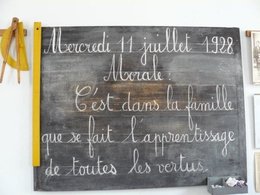 Mercredi 11 juillet 1928
Morale :
C'est dans la famille
que se fait l'apprentissage
de toutes les vertus.